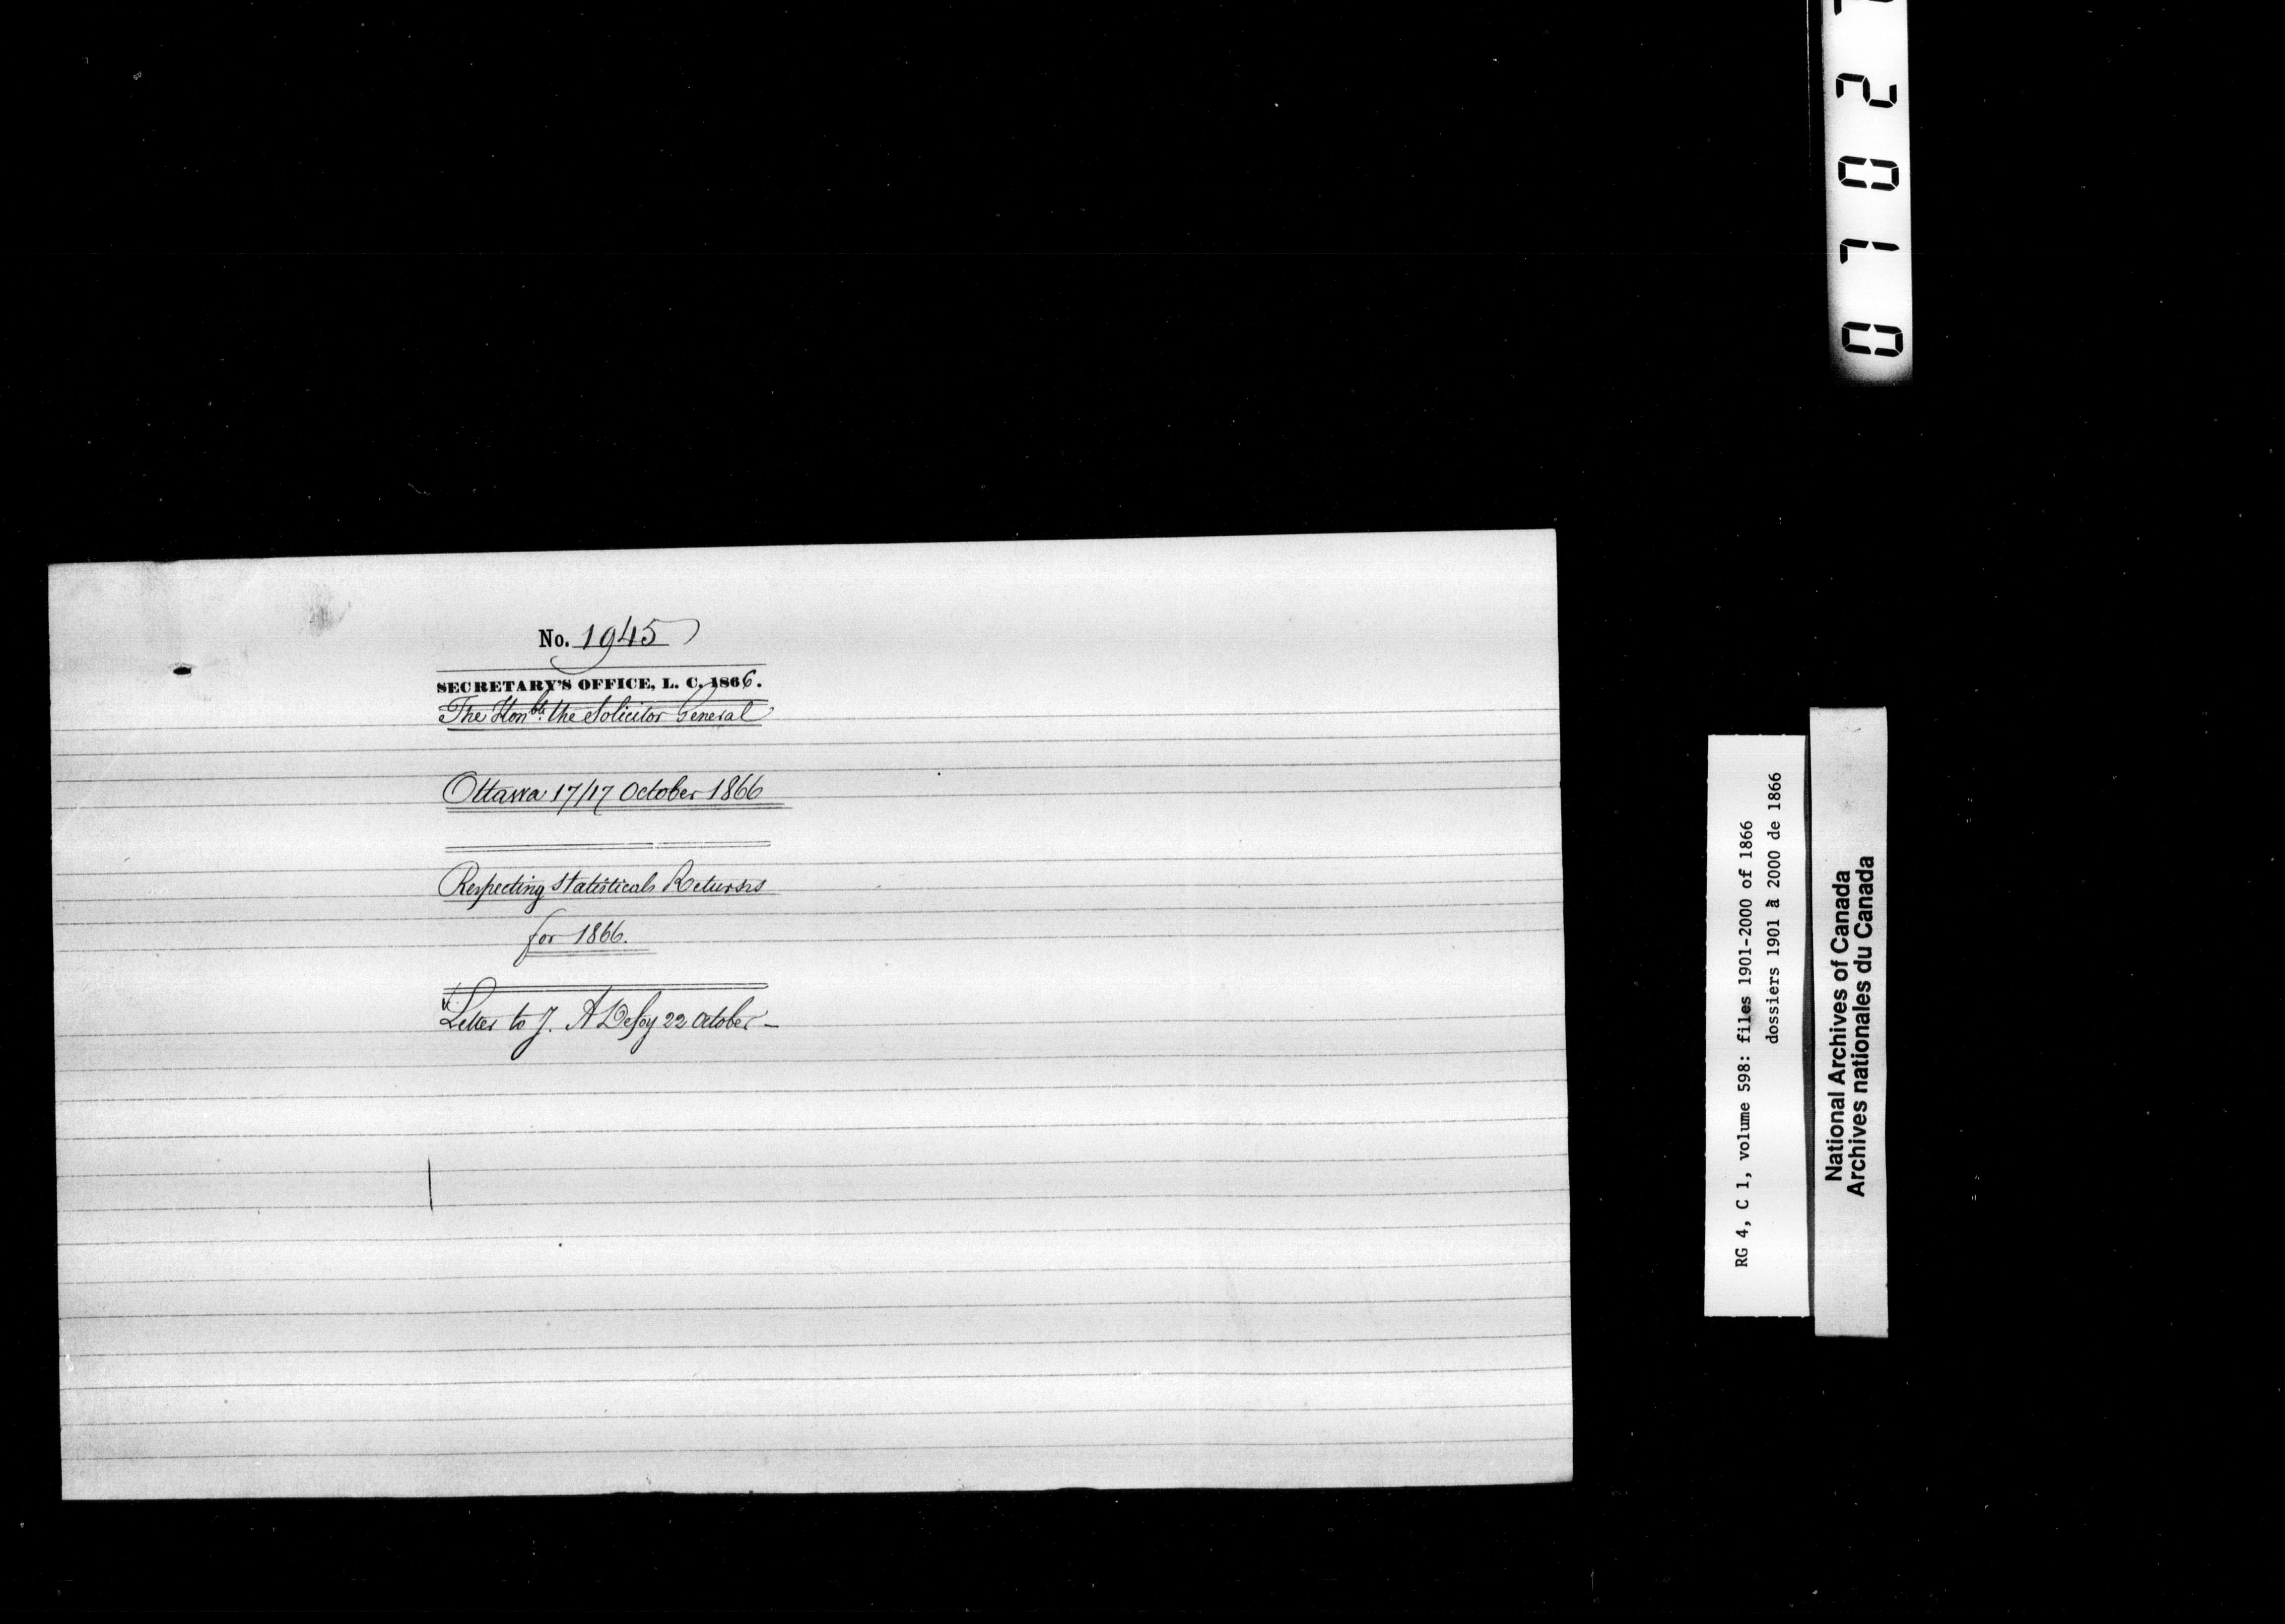 No. 1945
SECRETARY'S OFFICE, L. C. 1866.
The Honble. the Solicitor General
Ottawa 17/17 October 1866
Respecting Statistical Returns
for 1866.
Letter to J. A Defoy 22 October –
RG 4, C 1, volume 598: files 1901-2000 of 1866
dossiers 1901 à 2000 de 1866
National Archives of Canada
Archives nationales du Canada